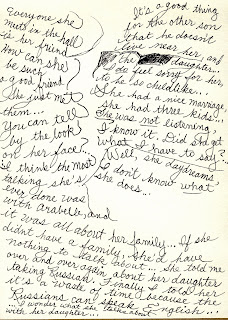 Everyone she
meets in the hall
is her friend
how can she
be such
a good friend
She just met
them...
You can tell
by the look
on her face...
I think the most
talking she's
ever done was
with arabella and
It's a good thing
for the other son
that he doesn't
live near her and
the daughter...
I do feel sorry for her
to be so childlike...
She had a nice marriage
she had three kids...
She was not listening
I know it. Did she get
what I have to say?
Well, she daydreams,
I don't know what
she does...
it was all about her family... If she
didn't have a family, she'd have
nothing to talk about... She told me
over and over again about her daughter
taking Russian. Finally I told her
it's a waste of time because the
Russians can speak English...
I wonder what she talks about
with her daughter...